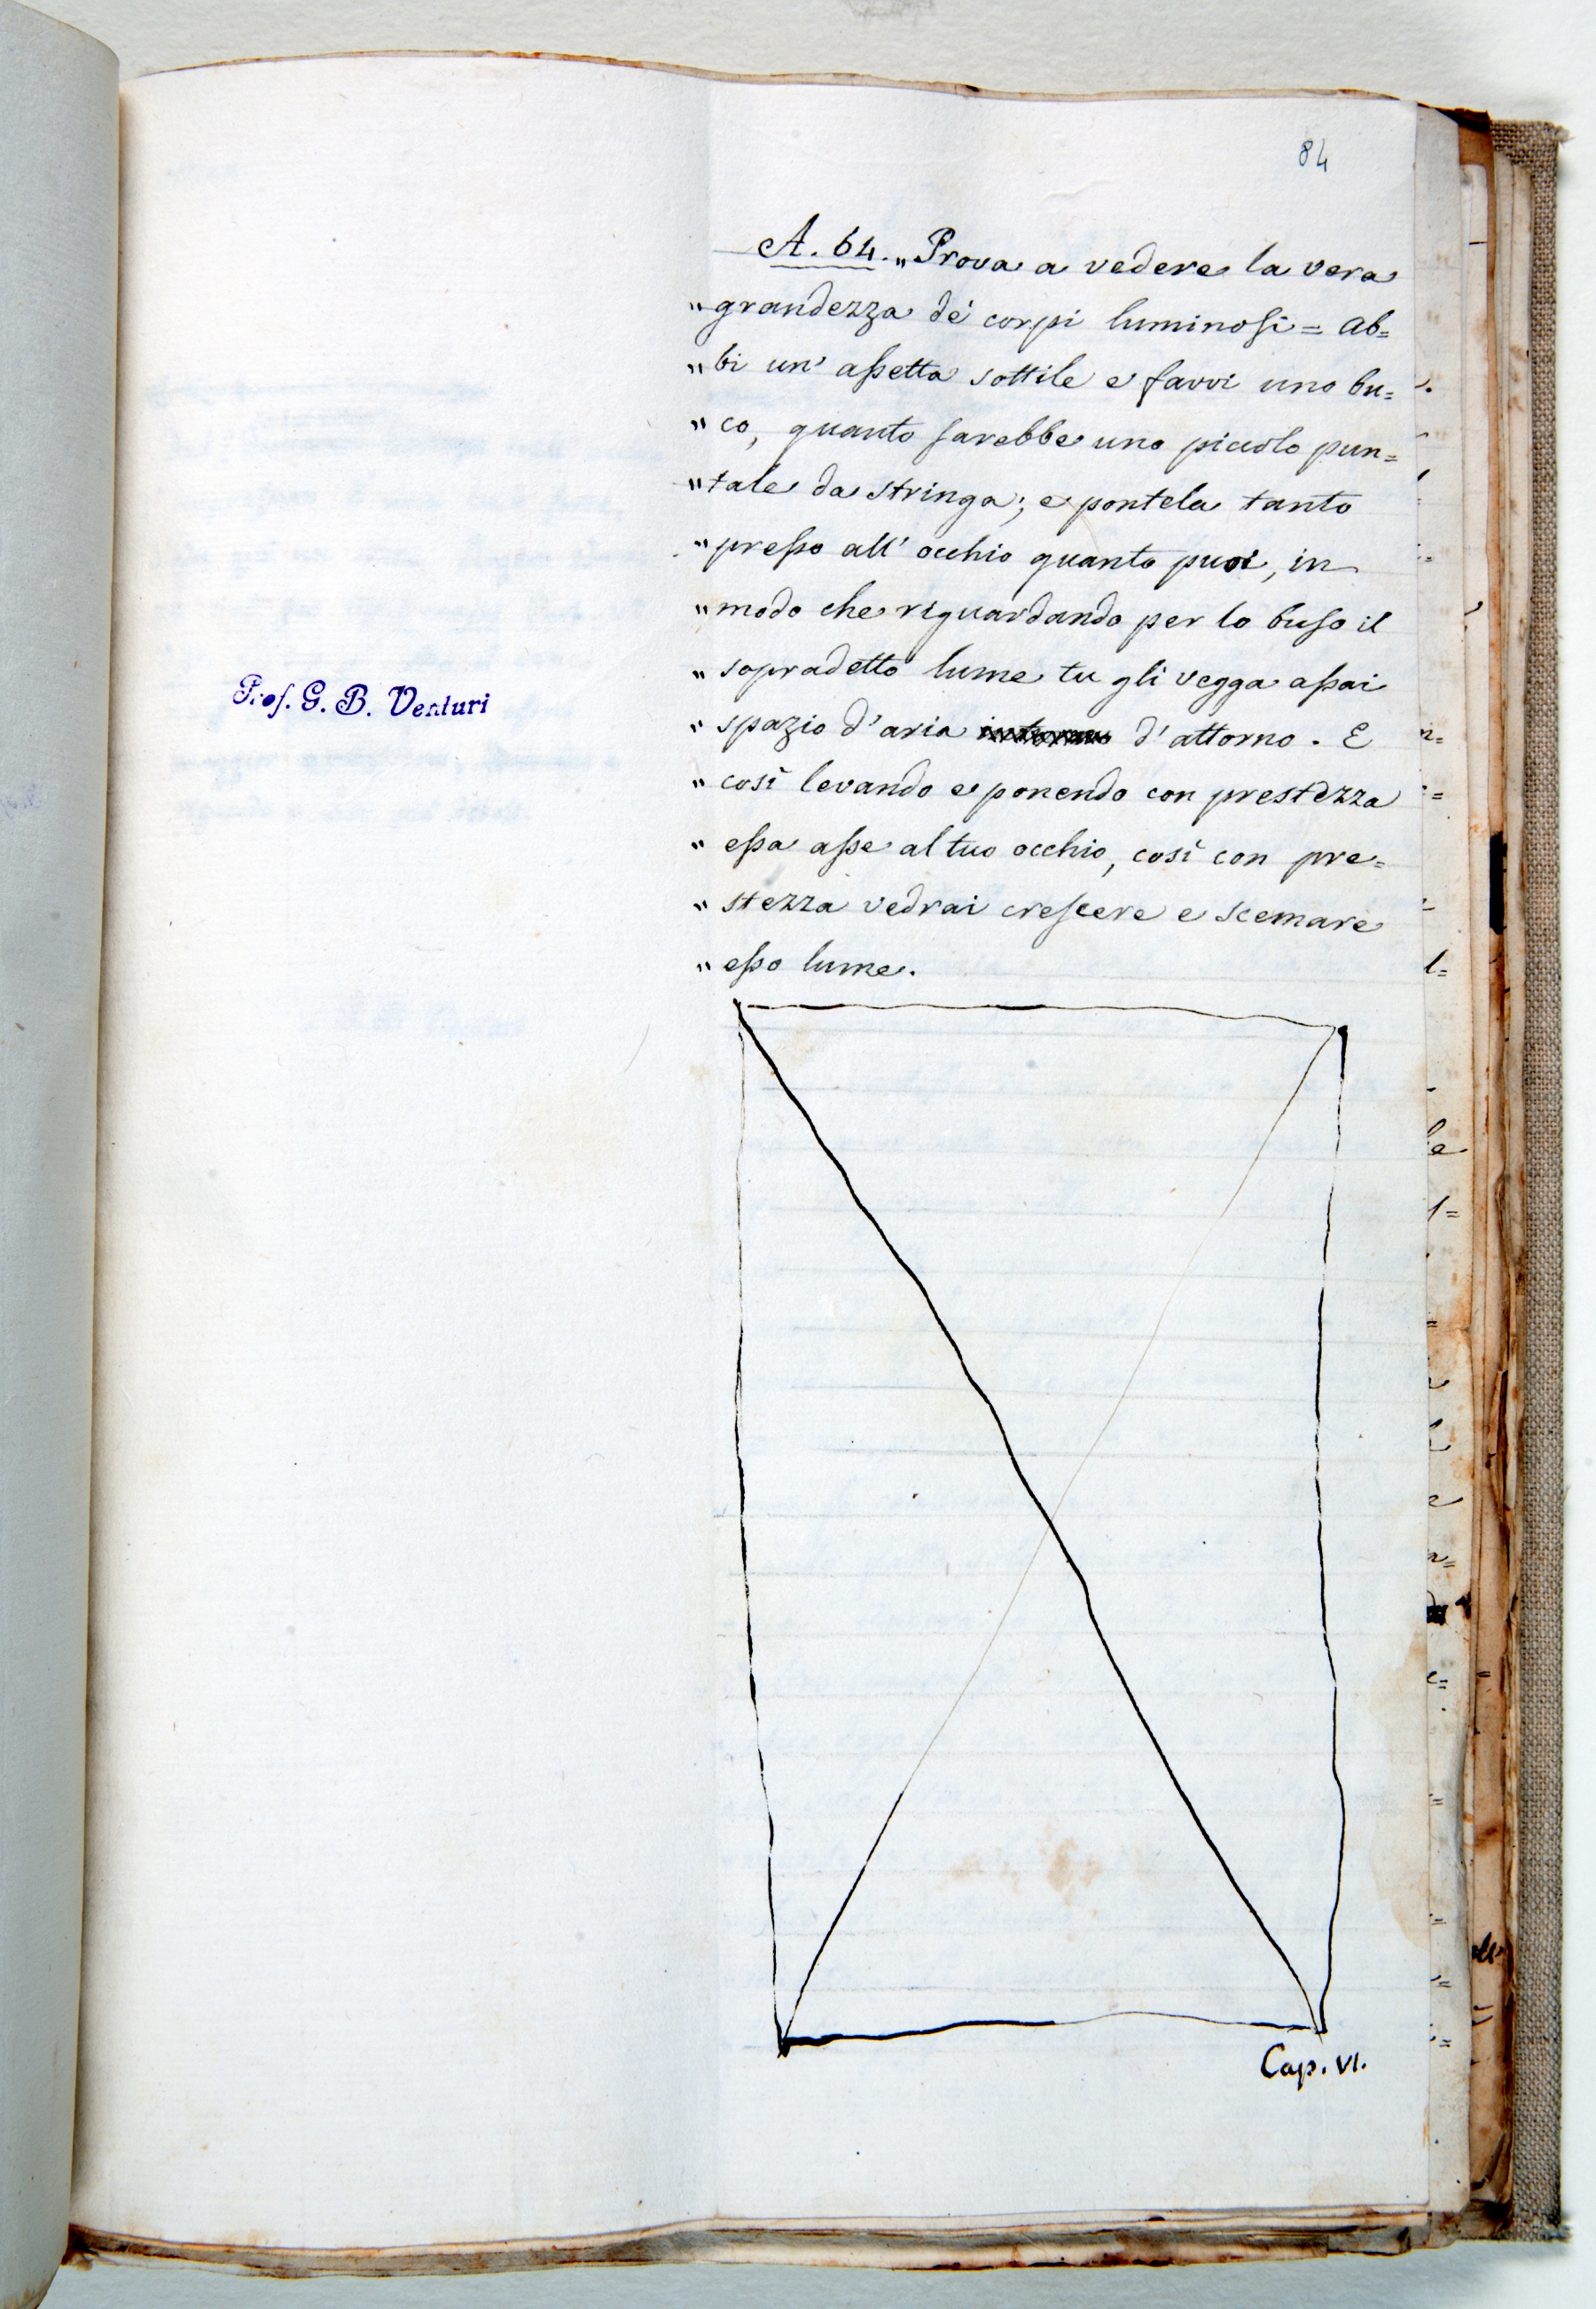 84
A. 64. „ Prova a vedere la vera
„ grandezza de' corpi luminosi = ab=
„ bi un' assetta sottile e favvi uno bu=
„ co, quanto sarebbe uno piccolo pun=
„ tale da stringa; e pontela tanto
„ presso all' occhio quanto puoi, in
„ modo che riguardando per lo buso il
„ sopradetto lume tu gli vegga assai
„ spazio d'aria d'attorno. E
„ così levando e ponendo con prestezza
„ essa asse al tuo occhio, così con pre=
„ stezza vedrai crescere e scemare
„ esso lume.
Prof. G. B. Venturi
Cap. VI.